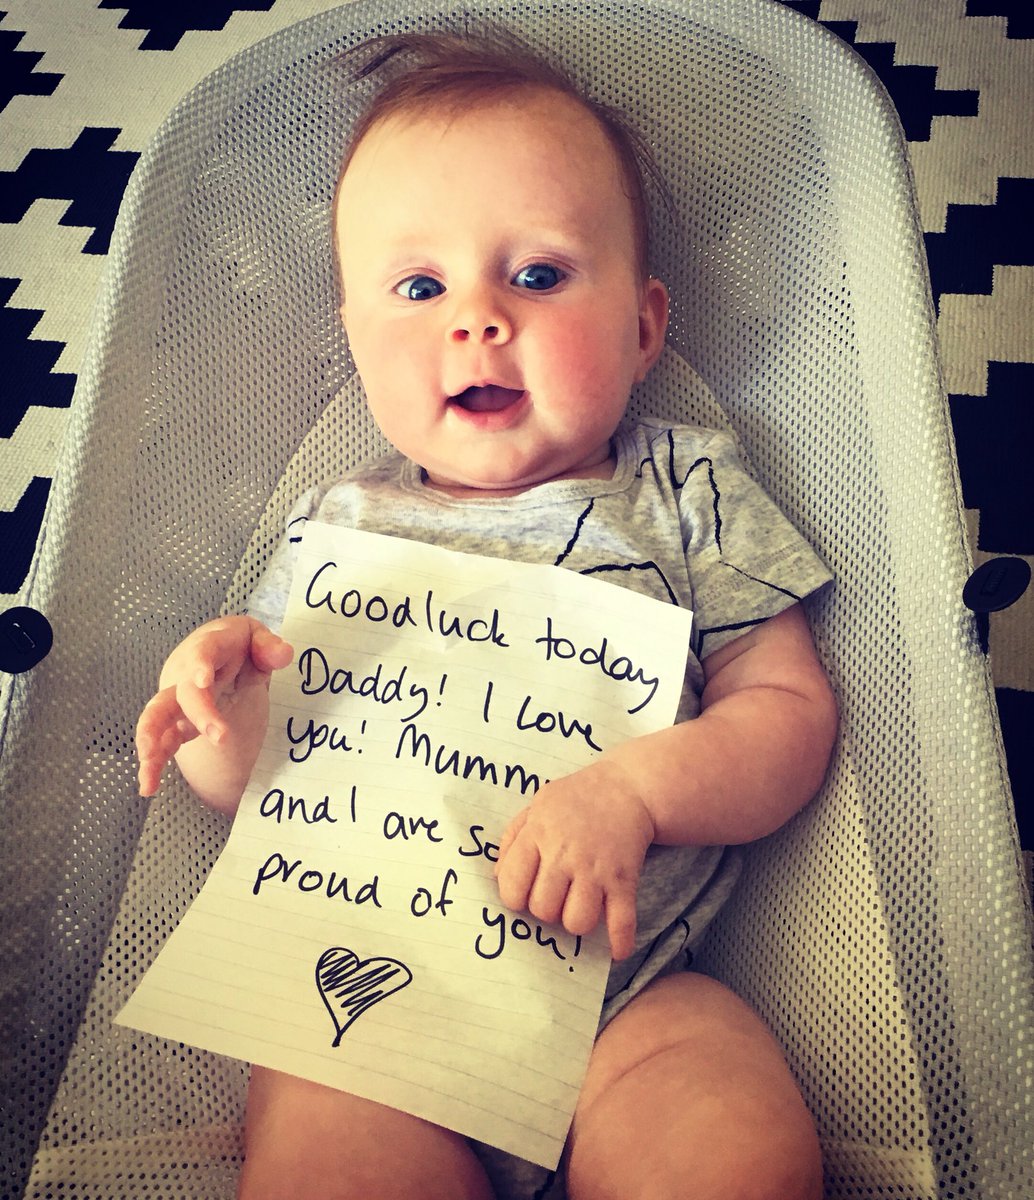 Good luck today
Daddy! I love
you! Mummy
and I are so
proud of you!